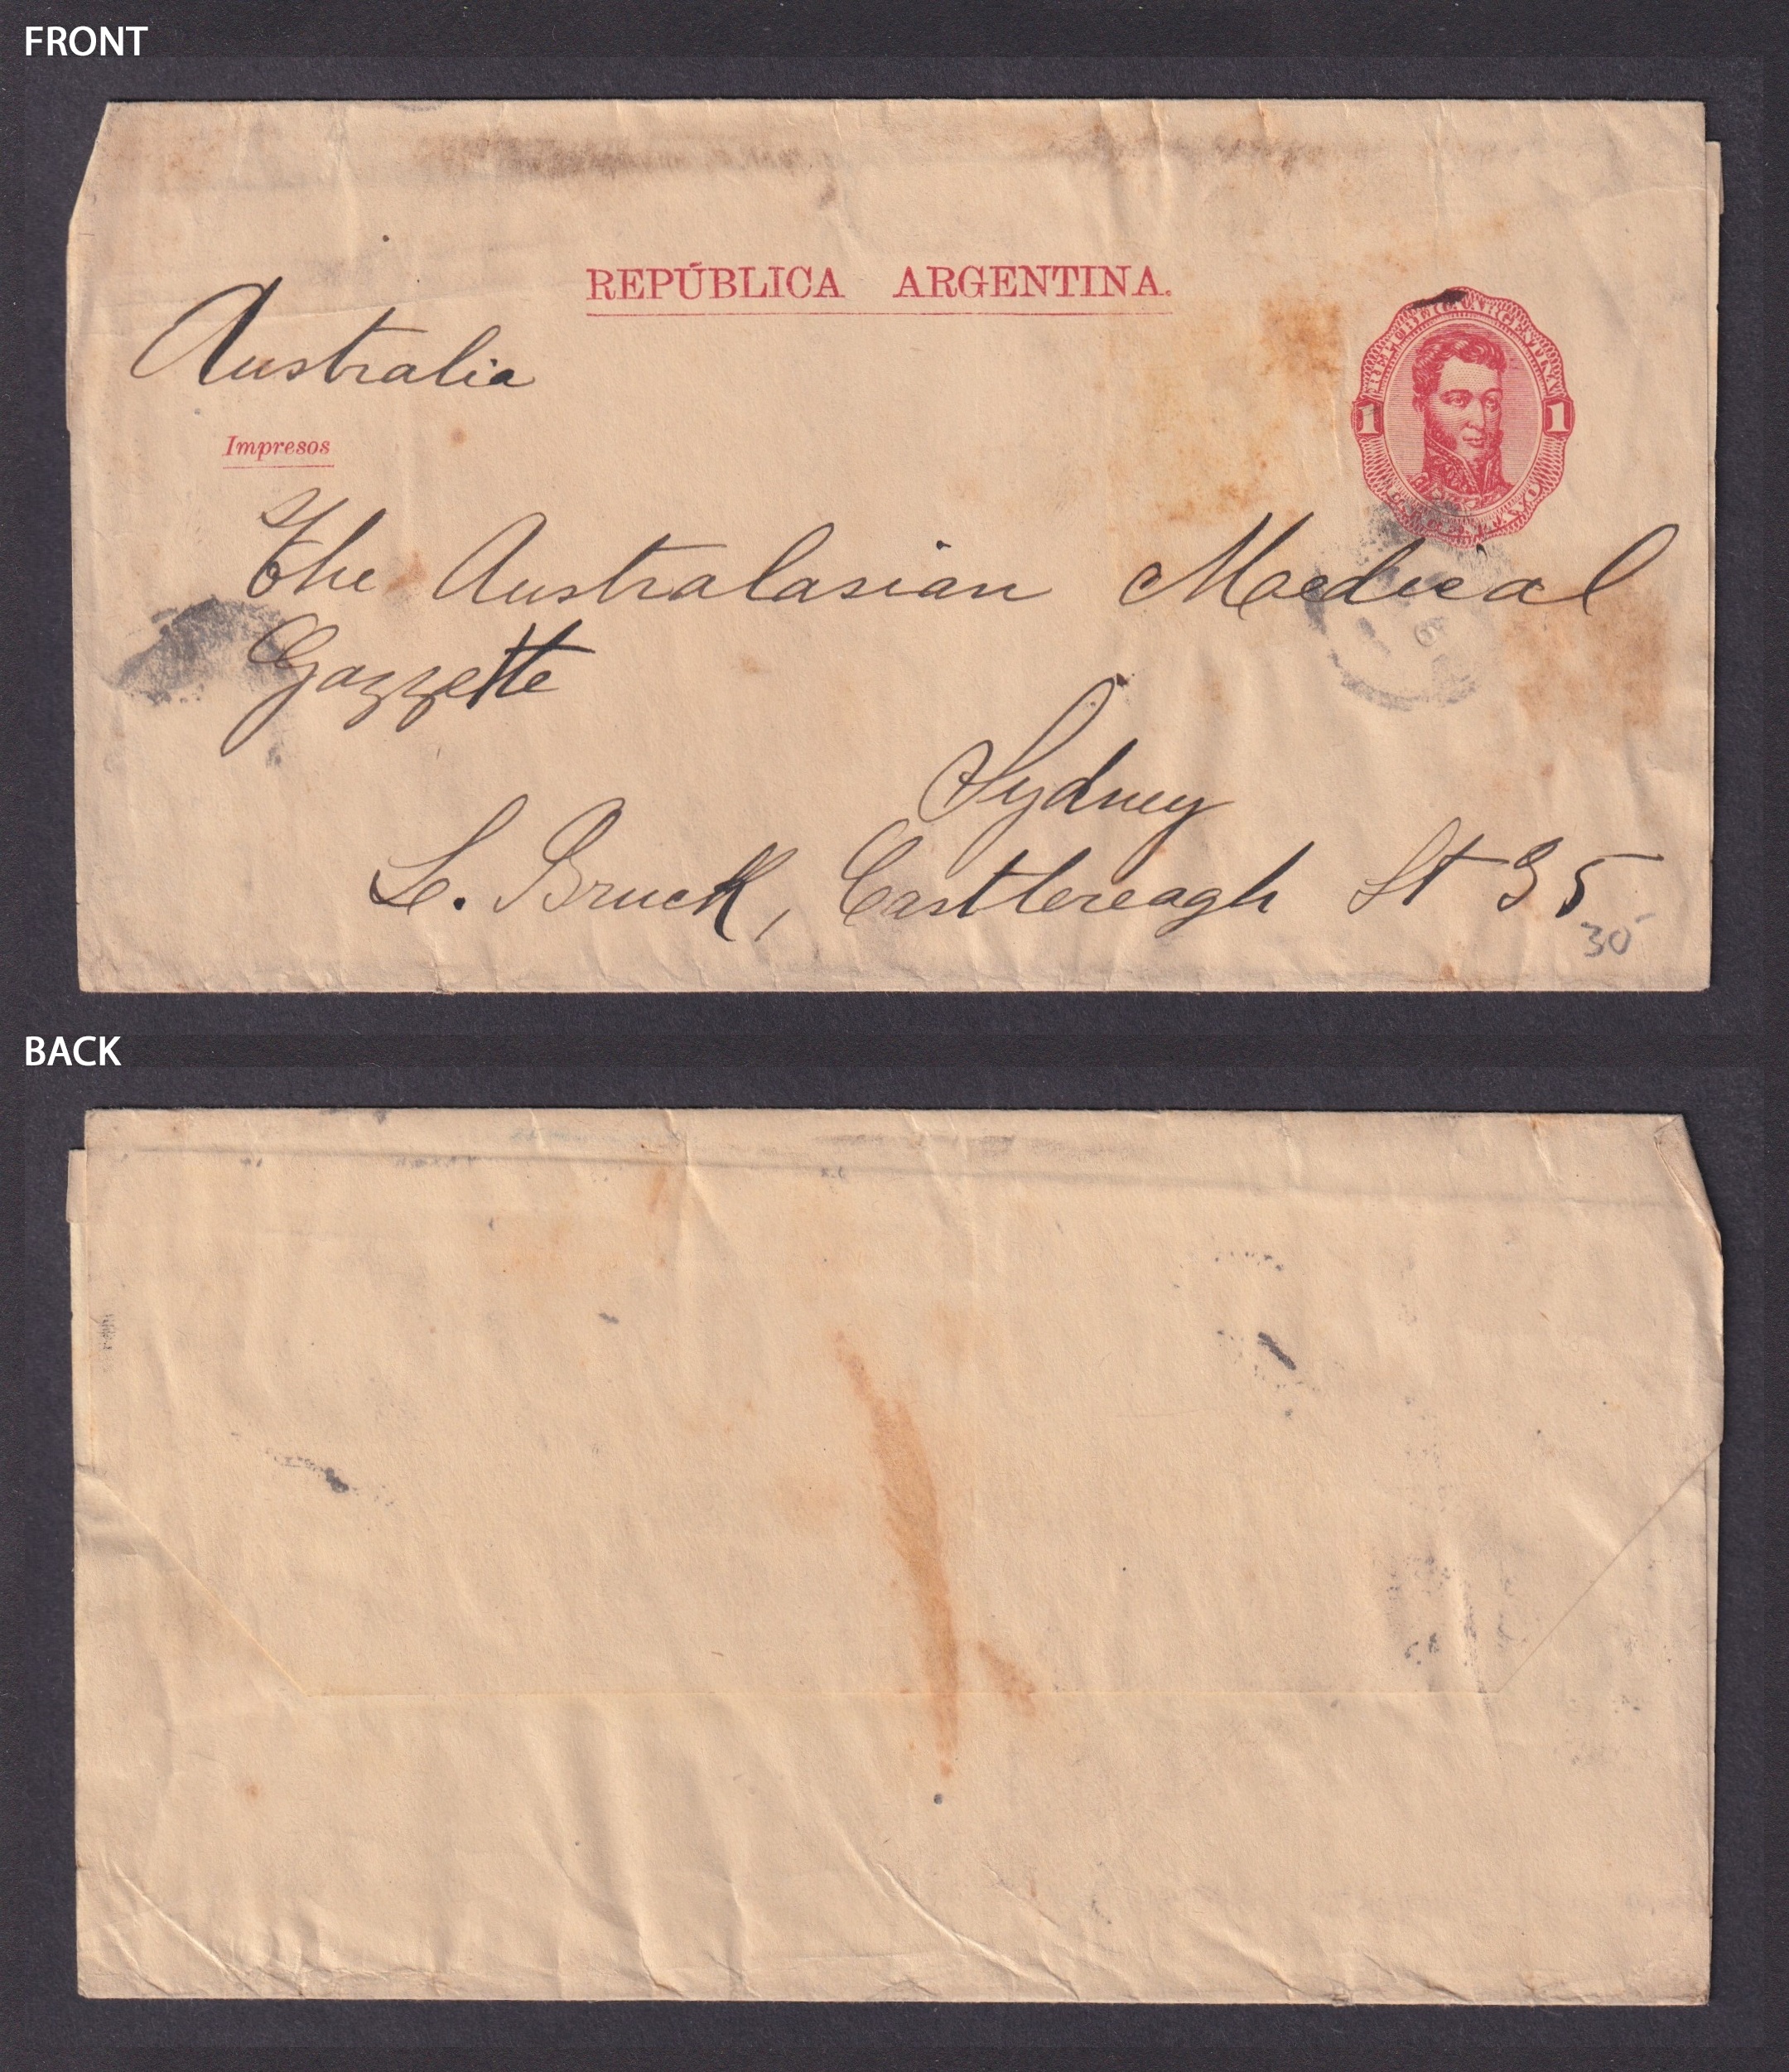 FRONT
REPÚBLICA ARGENTINA.
Australia
1 1
Impresos
The Australasian Medical
Gazzette
Sydney
L. Bruck, Castlereagh St 35
30
BACK